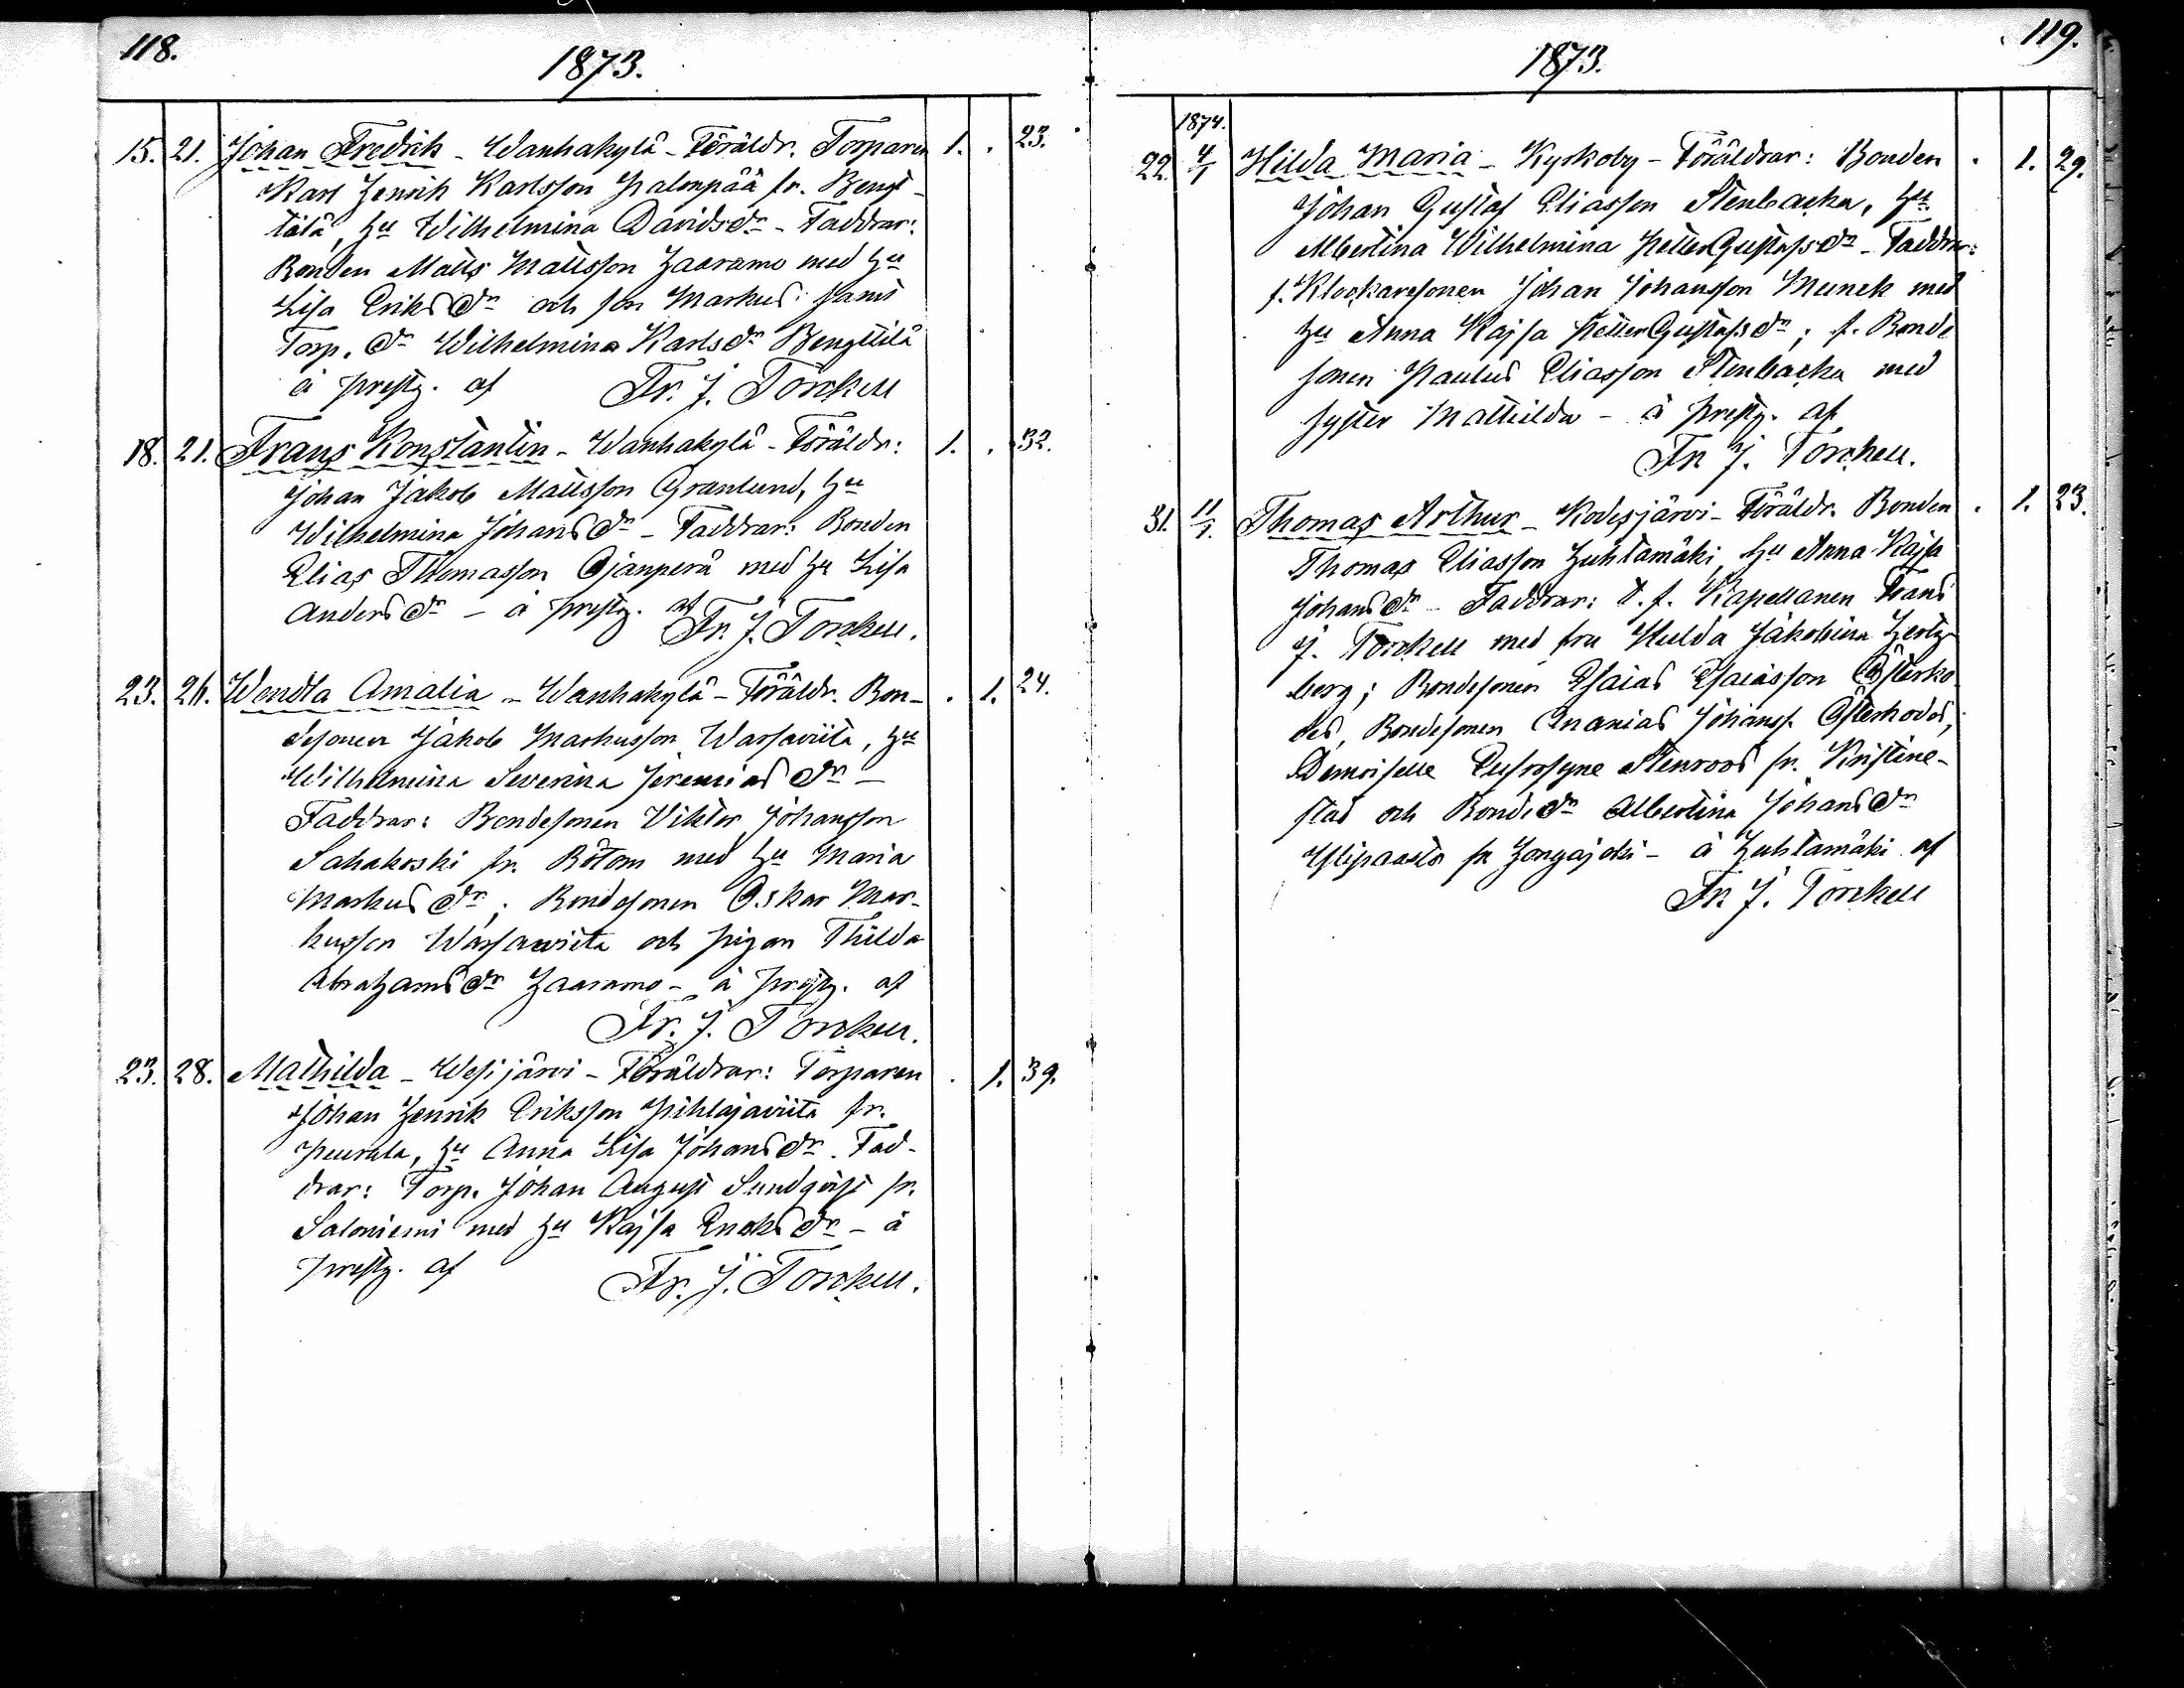 118.
1873.
15. 21. Johan Fredrik - Wanhakylä - Föräldr. Torparen 1. . 23.
Karl Henrik Karlsson Palonpää fr. Bengt-
tilä, Hu Wilhelmina Davidsdr - Faddrar:
Bonden Matts Mattsson Haaramo med Hu
Lisa Eriksdr och son Markus; samt
Torp. dr Wilhelmina Karlsdr Bengttilä
å prestg. af Fr. J. Torckell
18. 21. Frans Konstantin - Wanhakylä - Föräldr: 1. . 32.
Johan Jakob Mattsson Granlund, Hu
Wilhelmina Johansdr - Faddrar: Bonden
Elias Thomasson Ojanperä med Hu Lisa
Andersdr - å prestg. af Fr. J. Torckell.
23. 26. Wendla Amalia - Wanhakylä - Föräldr. Bon- . 1. 24.
desonen Jakob Markusson Warsawiita, Hu
Wilhelmina Severina Jeremiasdr -
Faddrar: Bondesonen Viktor Johansson
Sahakoski fr. Bötom med Hu Maria
Markusdr; Bondesonen Oskar Mar-
kusson Warsawiita och pigan Thilda
Abrahamsdr Haaramo - å prestg. af
Fr. J. Torckell.
23. 28. Mathilda - Wesijärvi - Föräldrar: Torparen . 1. 39.
Johan Henrik Eriksson Pihlajaviita fr.
Peurala, Hu Anna Lisa Johansdr. Fad-
drar: Torp. Johan August Sundqvist fr.
Saloniemi med Hu Kajsa Enoksdr - å
prestg. af Fr. J. Torckell.
119.
1873.
1874.
22. 4/1 Hilda Maria - Kyrkoby - Föräldrar: Bonden . 1. 29.
Johan Gustaf Eliasson Stenbacka, Hu
Albertina Wilhelmina Petter Gustafsdr - Faddrar:
f. Klockaresonen Johan Johansson Munck med
Hu Anna Kajsa Petter Gustafsdr; f. Bonde
sonen Paulus Eliasson Stenbacka med
syster Mathilda - å prestg. af
Fr J. Torckell.
31. 11/1. Thomas Arthur - Kodesjärvi - Föräldr. Bonden . 1. 23.
Thomas Eliasson Huhtamäki, Hu Anna Kajsa
Johansdr - Faddrar: t. f. Kapellanen Frans
J. Torckell med fru Hulda Jakobina Hertz-
berg; Bondesonen Esaias Esaiasson Österko
des, Bondesonen Ananias Johanss. Österkodes,
Demoiselle Eufrosyne Stenroos fr. Kristine-
stad och Bondedr Albertina Johansdr
Ylipaasto fr Honjajoki - å Huhtamäki af
Fr J. Torckell